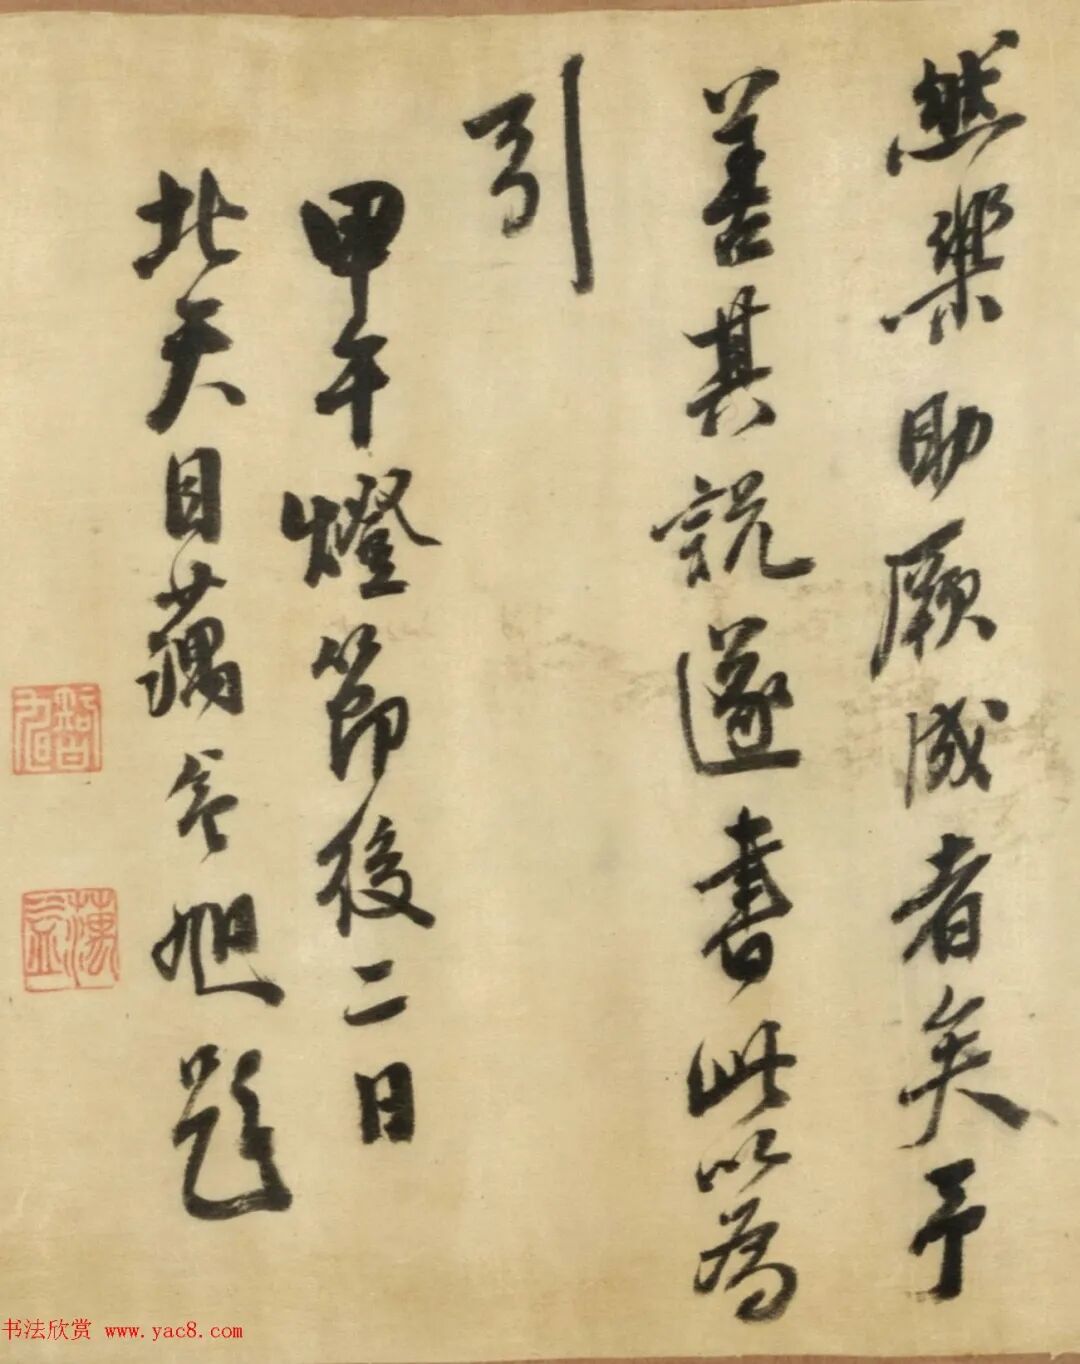 然樂助厥成者矣予
善其說遂書此以為
引
甲午燈節後二日
北天目蕅益旭題
智旭
蕅益
书法欣赏 www.yac8.com